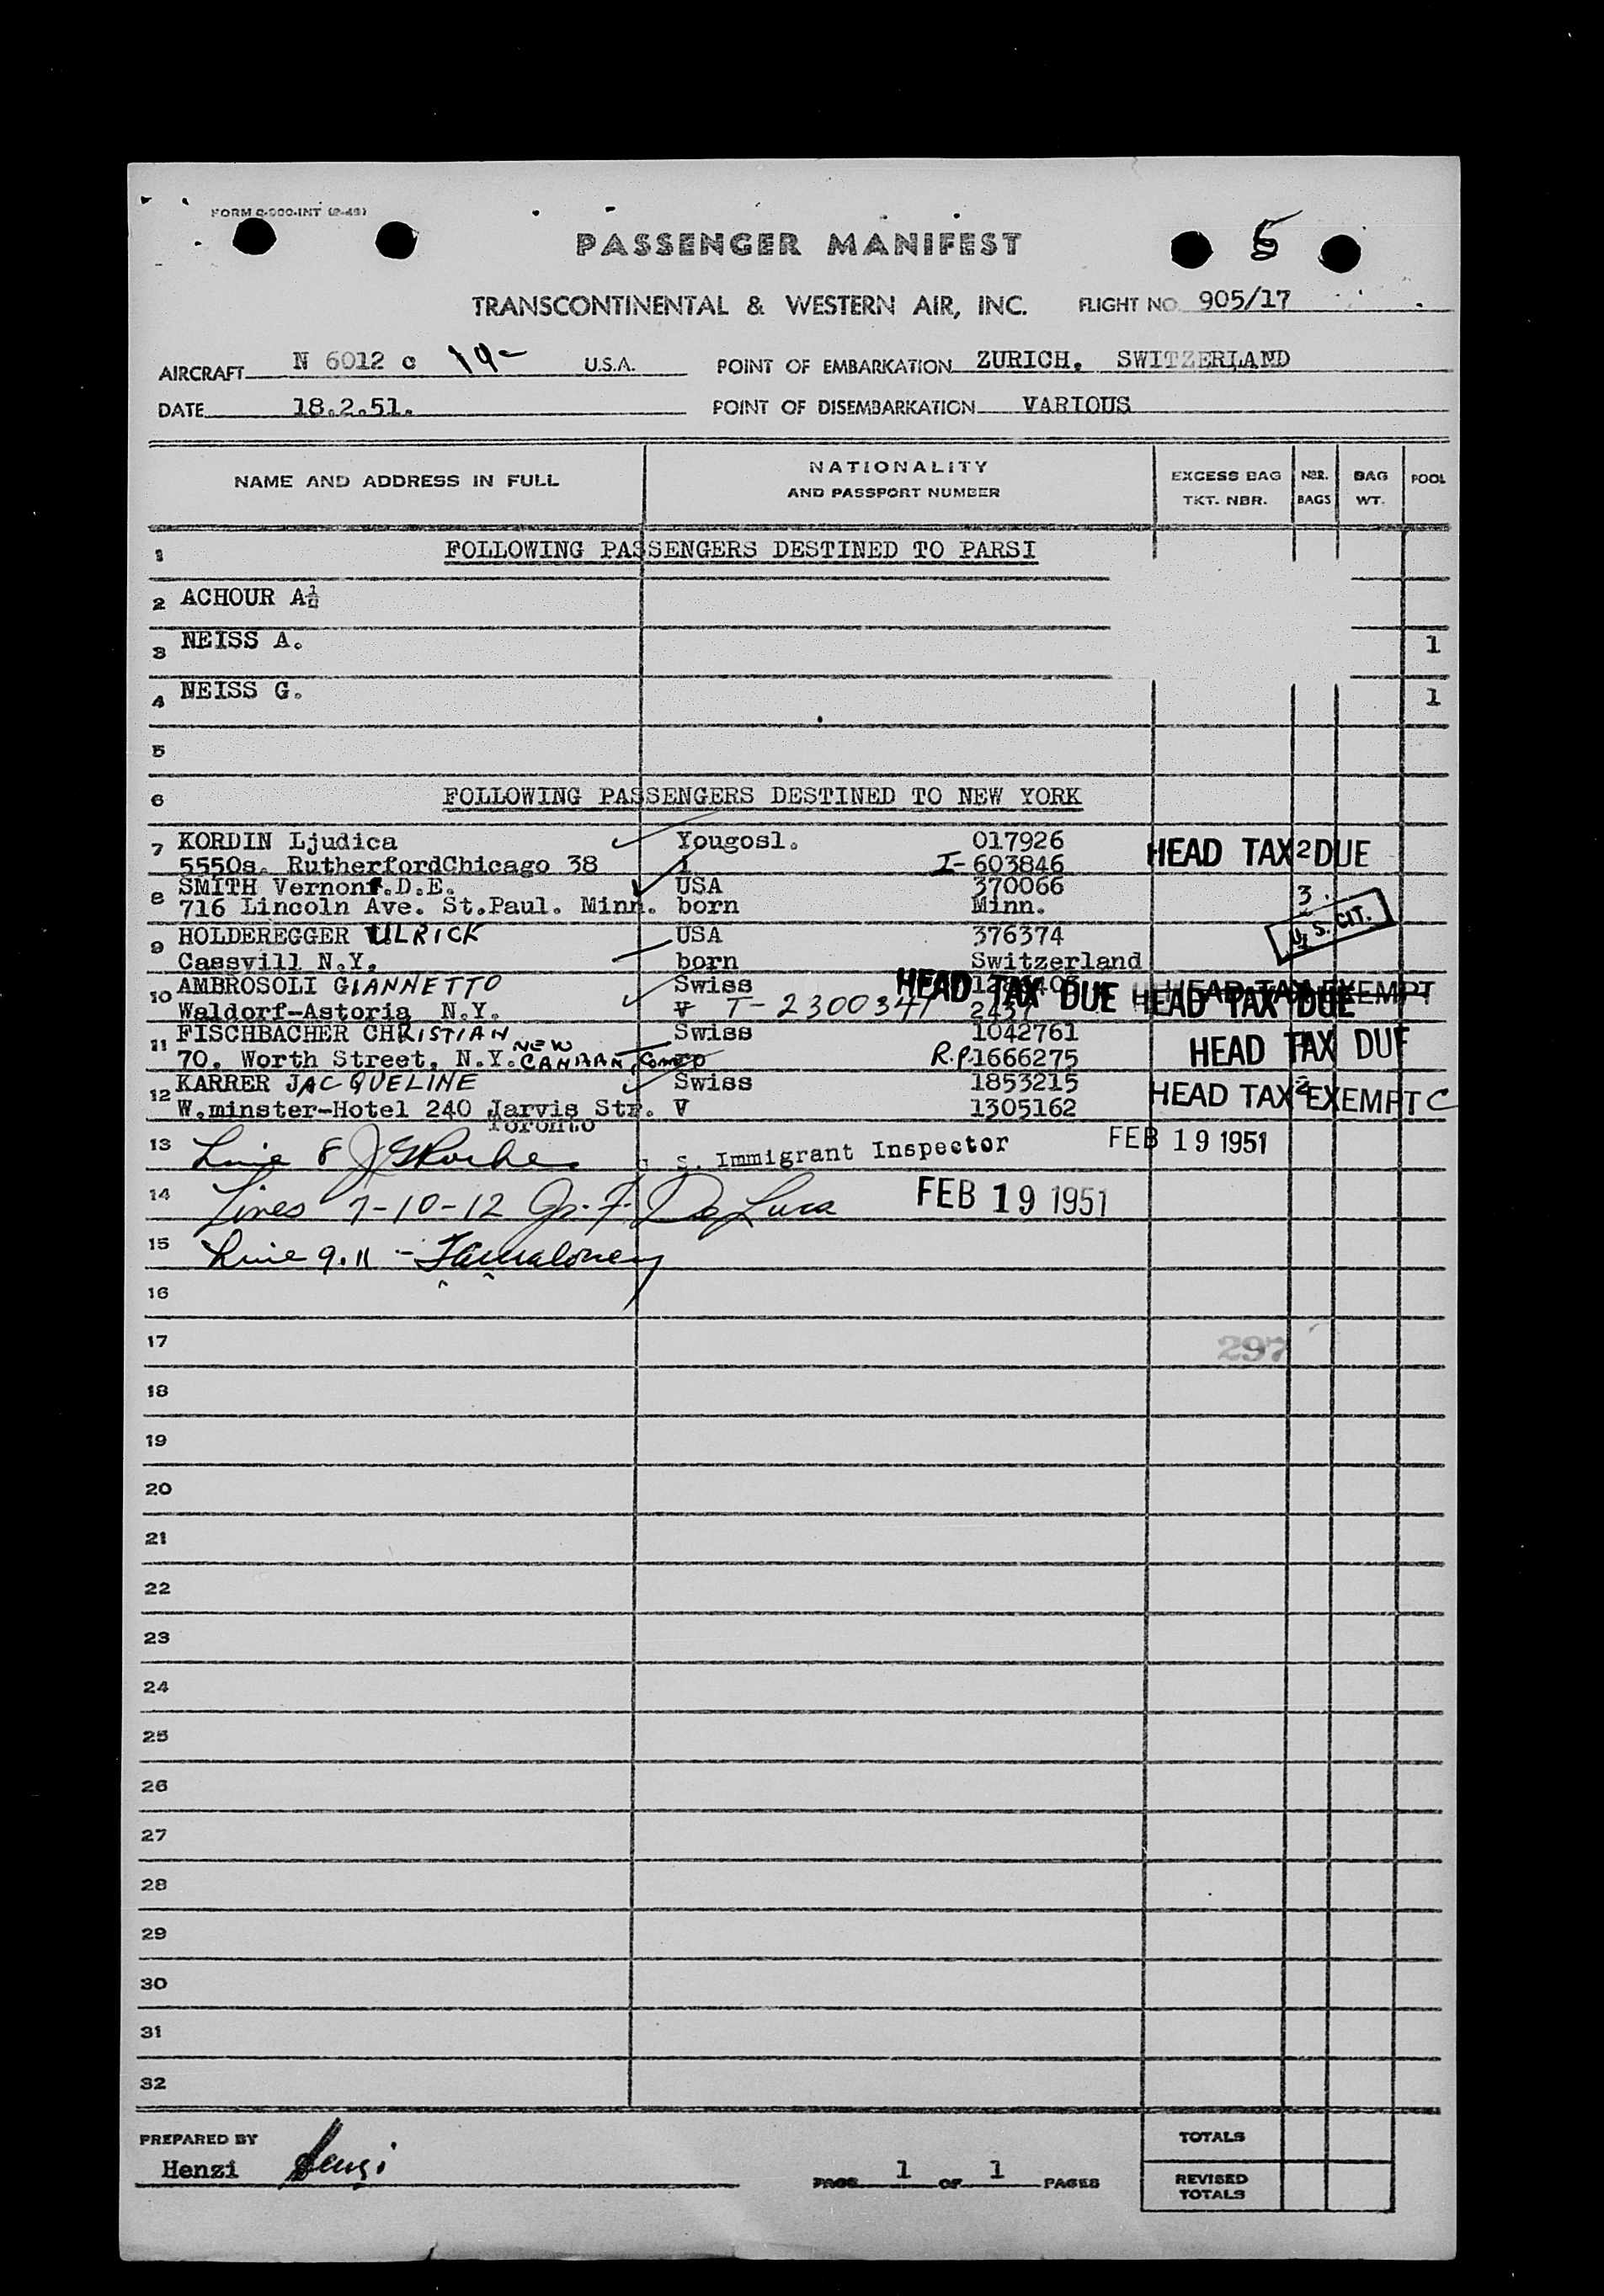 FORM
PASSENGER MANIFEST
TRANSCONTINENTAL & WESTERN AIR, INC. FLIGHT NO. 905/17
AIRCRAFT N 6012 c 19- U.S.A. POINT OF EMBARKATION ZURICH, SWITZERLAND
DATE 18.2.51. POINT OF DISEMBARKATION VARIOUS
NAME AND ADDRESS IN FULL NATIONALITY AND PASSPORT NUMBER EXCESS BAG TKT. NBR. NBR. BAGS BAG WT. POOL
1 FOLLOWING PASSENGERS DESTINED TO PARSI
2 ACHOUR A
3 NEISS A. 1
4 NEISS G. 1
5
6 FOLLOWING PASSENGERS DESTINED TO NEW YORK
7 KORDIN Ljudica Yougosl. 017926 HEAD TAX 2 DUE
5550s. RutherfordChicago 38 I- 603846
8 SMITH Vernon D.E. USA 370066 3
716 Lincoln Ave. St.Paul. Minn. born Minn. U.S. CIT.
9 HOLDEREGGER ULRICK USA 376374
Cassvill N.Y. born Switzerland
10 AMBROSOLI GIANNETTO Swiss HEAD TAX DUE HEAD TAX EXEMPT
Waldorf-Astoria N.Y. V T-2300347 2437 HEAD TAX DUE
11 FISCHBACHER CHRISTIAN Swiss 1042761 HEAD TAX DUE
70, Worth Street, N.Y. NEW CANAAN, Conn R.P. 1666275
12 KARRER JACQUELINE Swiss 1853215 HEAD TAX 2 EXEMPT C
W.minster-Hotel 240 Jarvis Str. V 1305162
Toronto
13 Line 8 U. S. Immigrant Inspector FEB 19 1951
14 Lines 7-10-12 De Luca FEB 19 1951
15 Line 9.11 -
16
17 297
18
19
20
21
22
23
24
25
26
27
28
29
30
31
32
PREPARED BY TOTALS
Henzi Henzi PAGE 1 OF 1 PAGES REVISED TOTALS